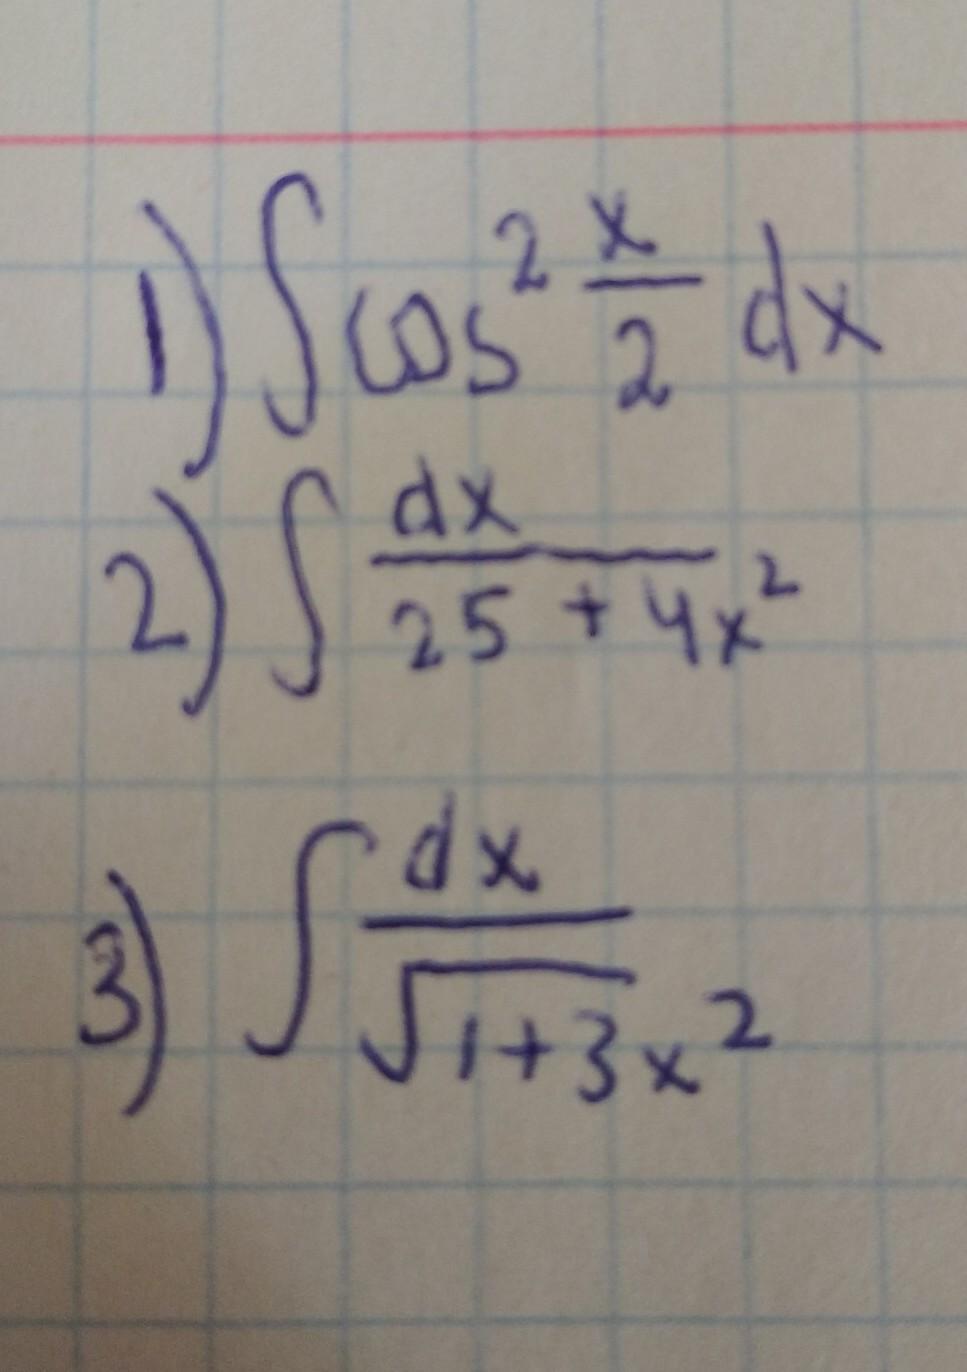 1) ∫cos² x/2 dx
2) ∫ dx/(25 + 4x²)
3) ∫ dx/√(1+3x²)